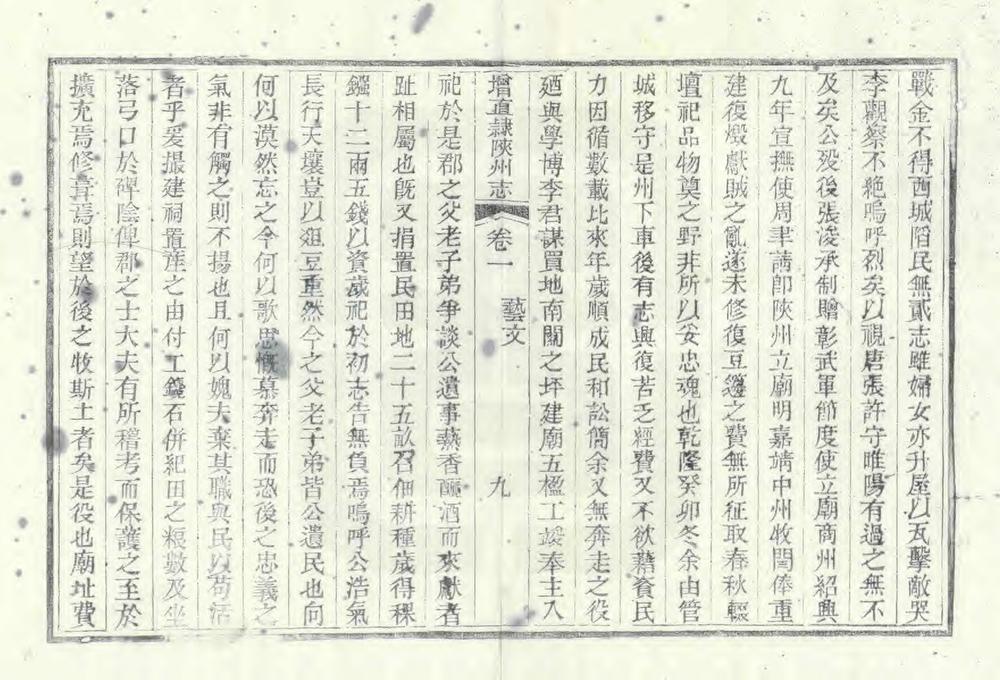 戰金不得西城陷民無貳志雖婦女亦升屋以瓦擊敵哭
李觀察不絕嗚呼烈矣以視唐張許守睢陽有過之無不
及矣公歿後張浚承制贈彰武軍節度使立廟商州紹興
九年宣撫使周聿請即陝州立廟明嘉靖中州牧閻俸重
建復燬獻賊之亂遂未修復豆籩之費無所征取春秋輒
壇祀品物奠之野非所以妥忠魂也乾隆癸卯冬余由管
城移守是州下車後有志興復苦乏經費又不欲藉資民
力因循數載比來年歲順成民和訟簡余又無奔走之役
廼與學博李君謀買地南關之坪建廟五楹工竣奉主入
增直隷陝州志 卷一 藝文 九
祀於是郡之父老子弟爭談公遺事爇香釃酒而來獻者
趾相屬也旣又捐置民田地二十五畝召佃耕種歲得稞
鏹十二兩五錢以資歲祀於初志告無負焉嗚呼公浩氣
長行天壤豈以俎豆重然今之父老子弟皆公遺民也向
何以漠然忘之今何以歌思慨慕奔走而恐後之忠義之
氣非有觸之則不揚也且何以媿夫棄其職與民以苟活
者乎爰撮建祠置產之由付工鐫石併紀田之糧數及坐
落弓口於碑陰俾郡之士大夫有所稽考而保護之至於
擴充焉修葺焉則望於後之牧斯土者矣是役也廟址費